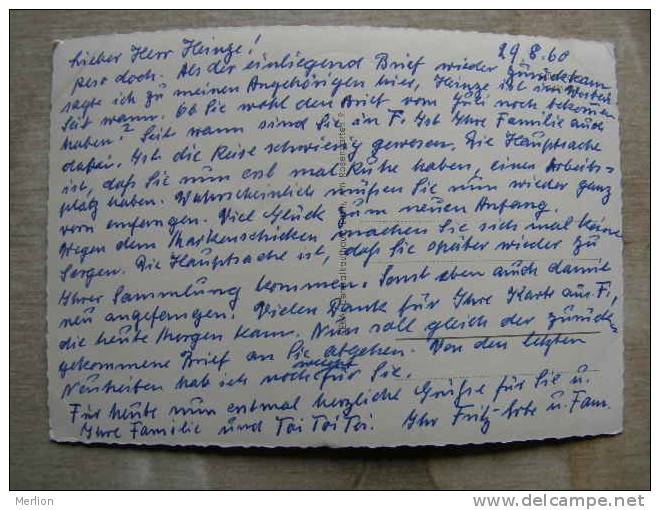 29.8.60
Lieber Herr Heinze!
Also doch. Als der einliegend Brief wieder zurückkam
sagte ich zu meinen Angehörigen hier, Heinze ist im Westen
Seit wann. Ob Sie wohl den Brief vom Juli noch bekommen
haben? Seit wann sind Sie in F. Ist Ihre Familie auch
dabei. Ist die Reise schwierig gewesen. Die Hauptsache
ist, daß Sie nun erst mal Ruhe haben, einen Arbeits=
platz haben. Wahrscheinlich müßen Sie nun wieder ganz
vorn anfangen. Viel Glück zum neuen Anfang.
Wegen dem Markenschicken machen Sie sich mal keine
Sorgen. Die Hauptsache ist, daß Sie später wieder zu
Ihrer Sammlung kommen. Sonst eben auch damit
neu angefangen. Vielen Dank für Ihre Karte aus F.,
die heute Morgen kam. Nun soll gleich der zurück=
gekommene Brief an Sie abgehen. Von den letzten
Neuheiten hab ich noch für Sie.
Für heute nun erstmal herzliche Grüße für Sie u.
Ihre Familie und Toi Toi Toi. Ihr Fritz u. Fam.
Merlion
www.delcampe.net